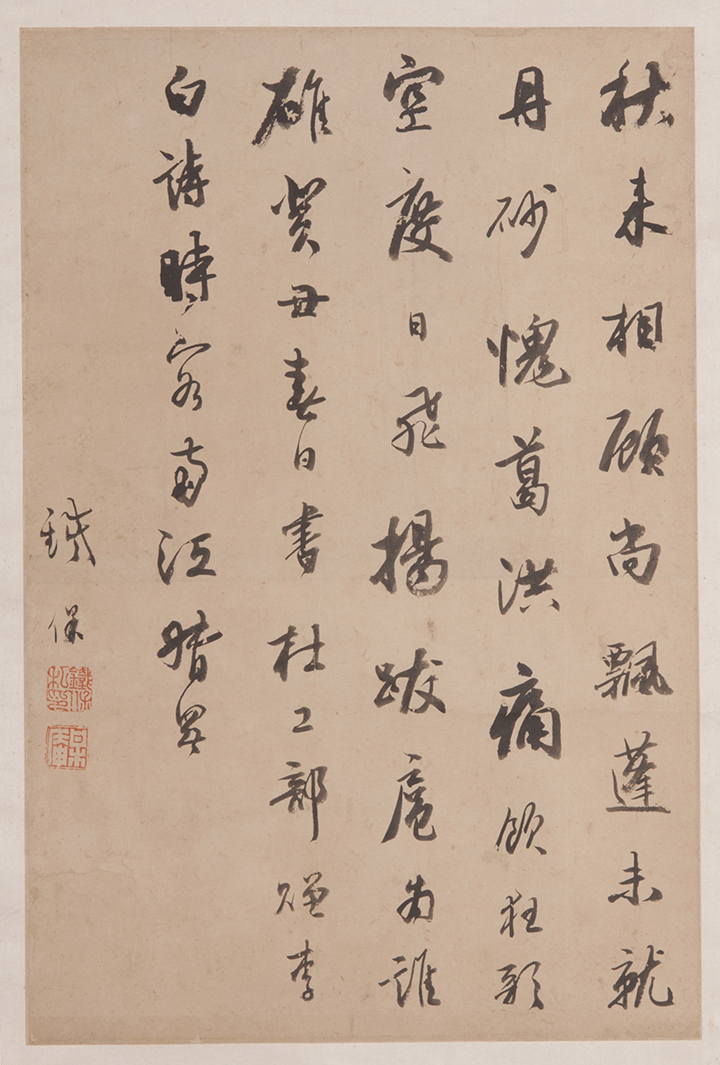 秋来相顧尚飄蓬未就
丹砂愧葛洪痛飲狂歌
空度日飛揚跋扈為誰
雄癸丑春日書杜工部贈李
白詩時客江
鐵保
鐵保私印